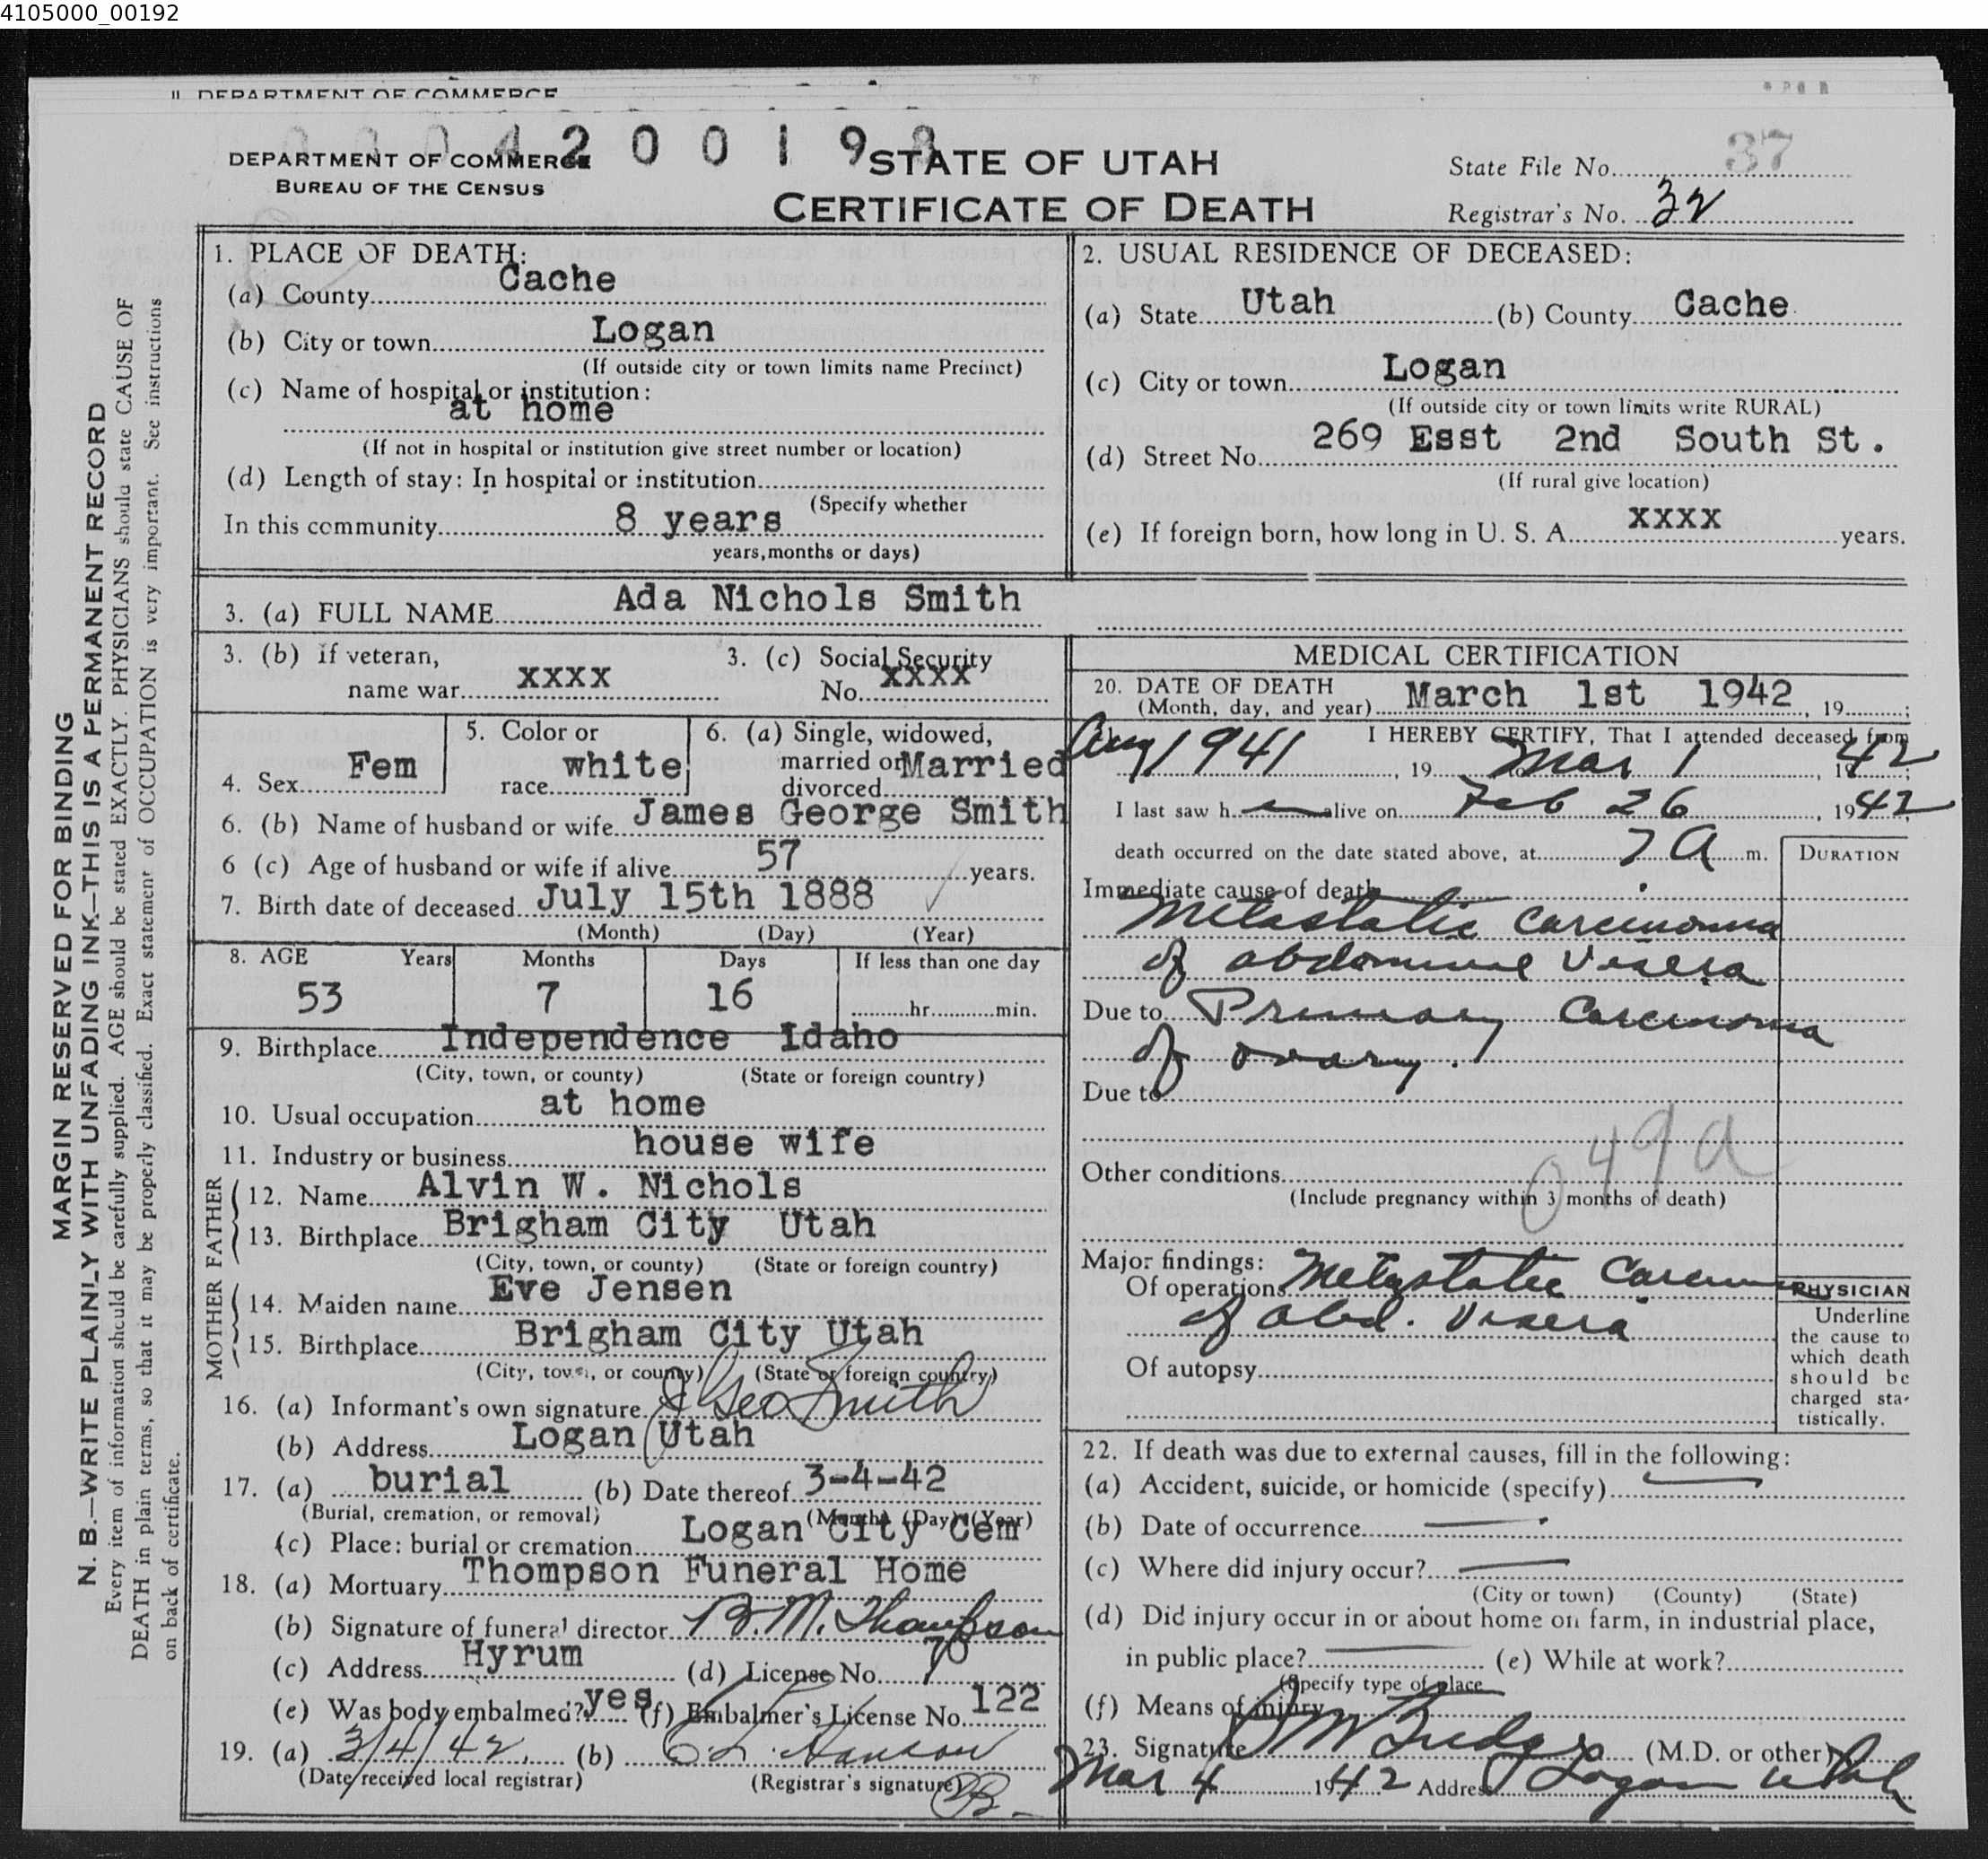 4105000_00192
DEPARTMENT OF COMMERCE
0004200198
DEPARTMENT OF COMMERCE
BUREAU OF THE CENSUS
STATE OF UTAH
CERTIFICATE OF DEATH
State File No. 37
Registrar's No. 32
MARGIN RESERVED FOR BINDING
N. B.—WRITE PLAINLY WITH UNFADING INK—THIS IS A PERMANENT RECORD
Every item of information should be carefully supplied. AGE should be stated EXACTLY. PHYSICIANS should state CAUSE OF
DEATH in plain terms, so that it may be properly classified. Exact statement of OCCUPATION is very important. See instructions
on back of certificate.
1. PLACE OF DEATH:
(a) County Cache
(b) City or town Logan
(If outside city or town limits name Precinct)
(c) Name of hospital or institution:
at home
(If not in hospital or institution give street number or location)
(d) Length of stay: In hospital or institution
(Specify whether
In this community 8 years
years, months or days)
2. USUAL RESIDENCE OF DECEASED:
(a) State Utah (b) County Cache
(c) City or town Logan
(If outside city or town limits write RURAL)
(d) Street No. 269 Esst 2nd South St.
(If rural give location)
(e) If foreign born, how long in U. S. A. xxxx years.
3. (a) FULL NAME Ada Nichols Smith
3. (b) if veteran, name war xxxx
3. (c) Social Security No. xxxx
4. Sex Fem
5. Color or race white
6. (a) Single, widowed, married or divorced Married
6. (b) Name of husband or wife James George Smith
6 (c) Age of husband or wife if alive 57 years.
7. Birth date of deceased July 15th 1888
(Month) (Day) (Year)
8. AGE Years Months Days If less than one day
53 7 16 hr. min.
9. Birthplace Independence Idaho
(City, town, or county) (State or foreign country)
10. Usual occupation at home
11. Industry or business house wife
FATHER
12. Name Alvin W. Nichols
13. Birthplace Brigham City Utah
(City, town, or county) (State or foreign country)
MOTHER
14. Maiden name Eve Jensen
15. Birthplace Brigham City Utah
(City, town, or county) (State or foreign country)
16. (a) Informant's own signature J Geo Smith
(b) Address Logan Utah
17. (a) burial (b) Date thereof 3-4-42
(Burial, cremation, or removal) (Month) (Day) (Year)
(c) Place: burial or cremation Logan City Cem
18. (a) Mortuary Thompson Funeral Home
(b) Signature of funeral director B. M. Thompson
(c) Address Hyrum (d) License No. 70
(e) Was body embalmed? yes (f) Embalmer's License No. 122
19. (a) 3/4/42 (b) Hanson
(Date received local registrar) (Registrar's signature)
MEDICAL CERTIFICATION
20. DATE OF DEATH
(Month, day, and year) March 1st 1942, 19 ;
I HEREBY CERTIFY, That I attended deceased from
Aug 1941, 19 to Mar 1, 1942;
I last saw h er alive on Feb 26, 1942
death occurred on the date stated above, at 7 A m.
DURATION
Immediate cause of death
Metastatic Carcinoma
of abdominal Viscera
Due to Primary Carcinoma
of ovary.
Due to
049a
Other conditions
(Include pregnancy within 3 months of death)
Major findings:
Of operations Metastatic Carcinoma
of Abd. Viscera
Of autopsy
PHYSICIAN
Underline
the cause to
which death
should be
charged sta-
tistically.
22. If death was due to external causes, fill in the following:
(a) Accident, suicide, or homicide (specify)
(b) Date of occurrence
(c) Where did injury occur?
(City or town) (County) (State)
(d) Did injury occur in or about home on farm, in industrial place,
in public place? (e) While at work?
(Specify type of place
(f) Means of injury
23. Signature (M.D. or other)
Mar 4 1942 Address Logan Utah